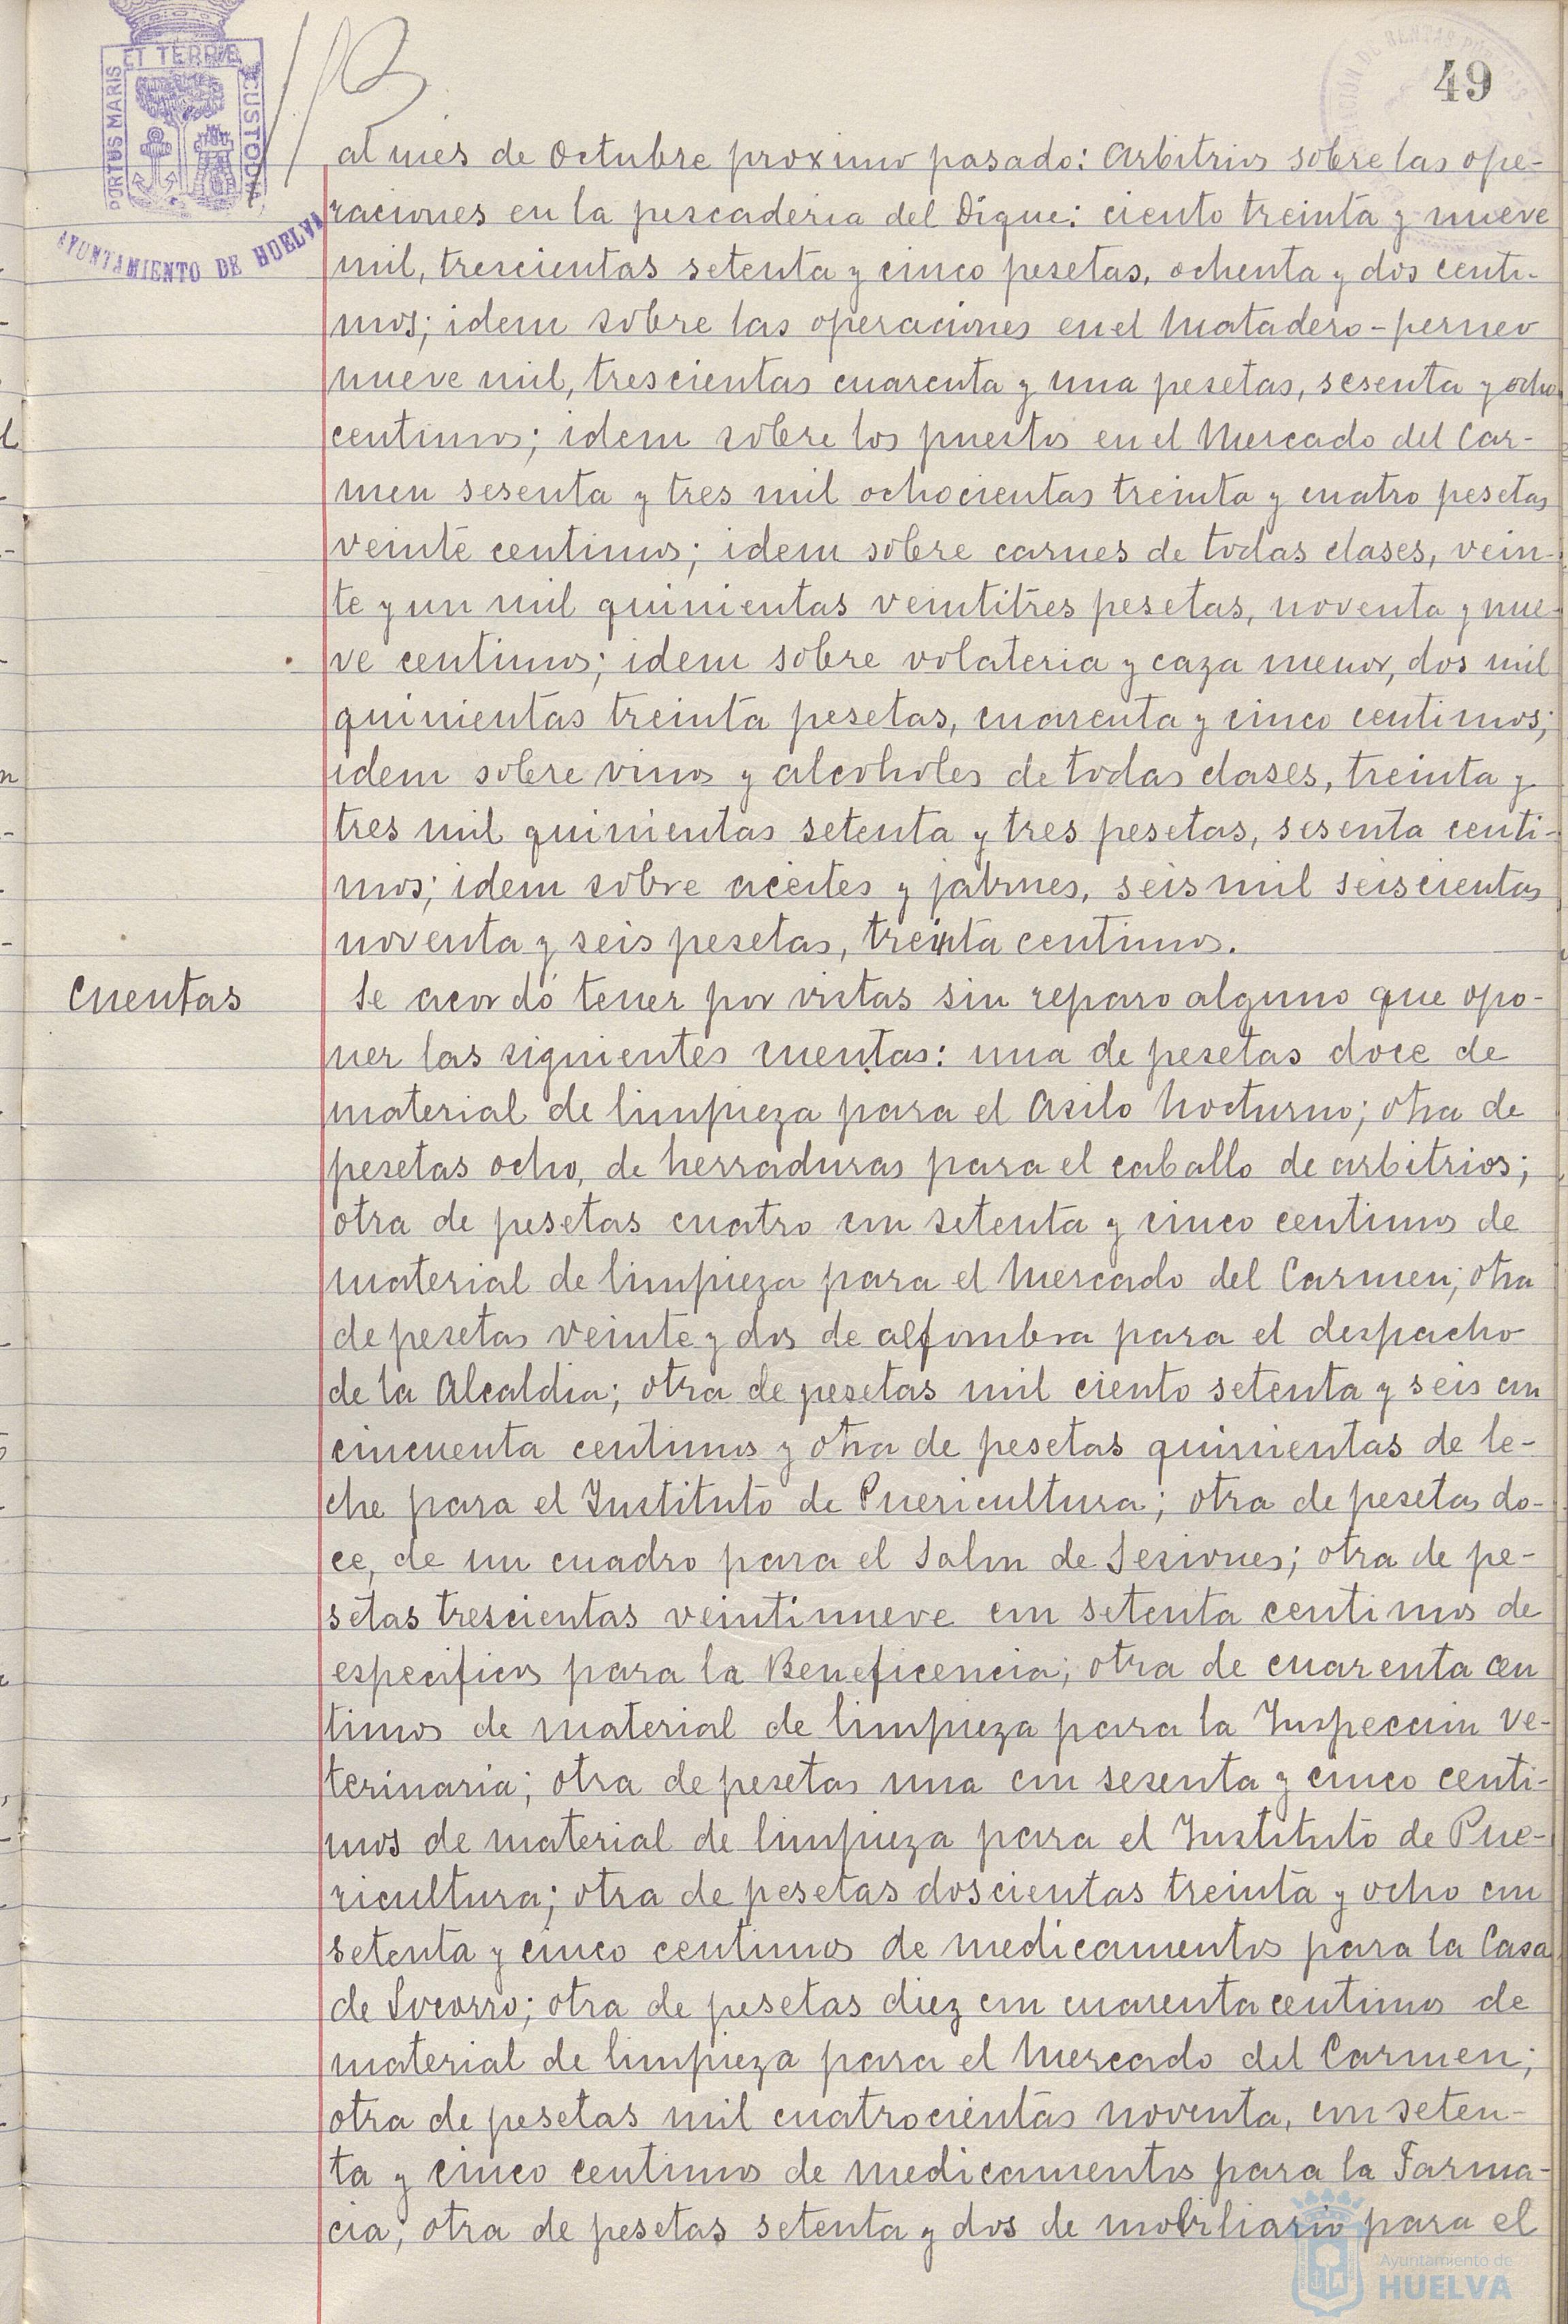 49
PORTUS MARIS ET TERRÆ CUSTODIA
AYUNTAMIENTO DE HUELVA
al mes de Octubre proximo pasado: Arbitrios sobre las ope-
raciones en la pescaderia del Dique: ciento treinta y nueve
mil, trescientas setenta y cinco pesetas, ochenta y dos centi-
mos; idem sobre las operaciones en el Matadero-perneo
nueve mil, trescientas cuarenta y una pesetas, sesenta y ocho
centimos; idem sobre los puestos en el Mercado del Car-
men sesenta y tres mil ochocientas treinta y cuatro pesetas
veinte centimos; idem sobre carnes de todas clases, vein-
te y un mil quinientas veintitres pesetas, noventa y nue-
ve centimos; idem sobre volateria y caza menor, dos mil
quinientas treinta pesetas, cuarenta y cinco centimos;
idem sobre vinos y alcoholes de todas clases, treinta y
tres mil quinientas setenta y tres pesetas, sesenta centi-
mos; idem sobre aceites y jabones, seis mil seiscientas
noventa y seis pesetas, treinta centimos.
Cuentas
Se acordó tener por vistas sin reparo alguno que opo-
ner las siguientes cuentas: una de pesetas doce de
material de limpieza para el Asilo Nocturno; otra de
pesetas ocho, de herraduras para el caballo de arbitrios;
otra de pesetas cuatro con setenta y cinco centimos de
material de limpieza para el Mercado del Carmen; otra
de pesetas veinte y dos de alfombra para el despacho
de la Alcaldia; otra de pesetas mil ciento setenta y seis con
cincuenta centimos y otra de pesetas quinientas de le-
che para el Instituto de Puericultura; otra de pesetas do-
ce, de un cuadro para el Salon de Sesiones; otra de pe-
setas trescientas veintinueve con setenta centimos de
especificos para la Beneficencia; otra de cuarenta cen
timos de material de limpieza para la Inspeccion Ve-
terinaria; otra de pesetas una con sesenta y cinco centi-
mos de material de limpieza para el Instituto de Pue-
ricultura; otra de pesetas doscientas treinta y ocho con
setenta y cinco centimos de medicamentos para la Casa
de Socorro; otra de pesetas diez con cuarenta centimos de
material de limpieza para el Mercado del Carmen;
otra de pesetas mil cuatrocientas noventa, con seten-
ta y cinco centimos de medicamentos para la Farma-
cia; otra de pesetas setenta y dos de mobiliario para el
Ayuntamiento de
HUELVA